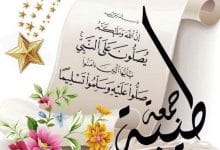 إن الله وملائكته
يصلون على النبي
يا أيها الذين آمنوا
صلوا عليه وسلموا تسليما
جمعة
طيبة